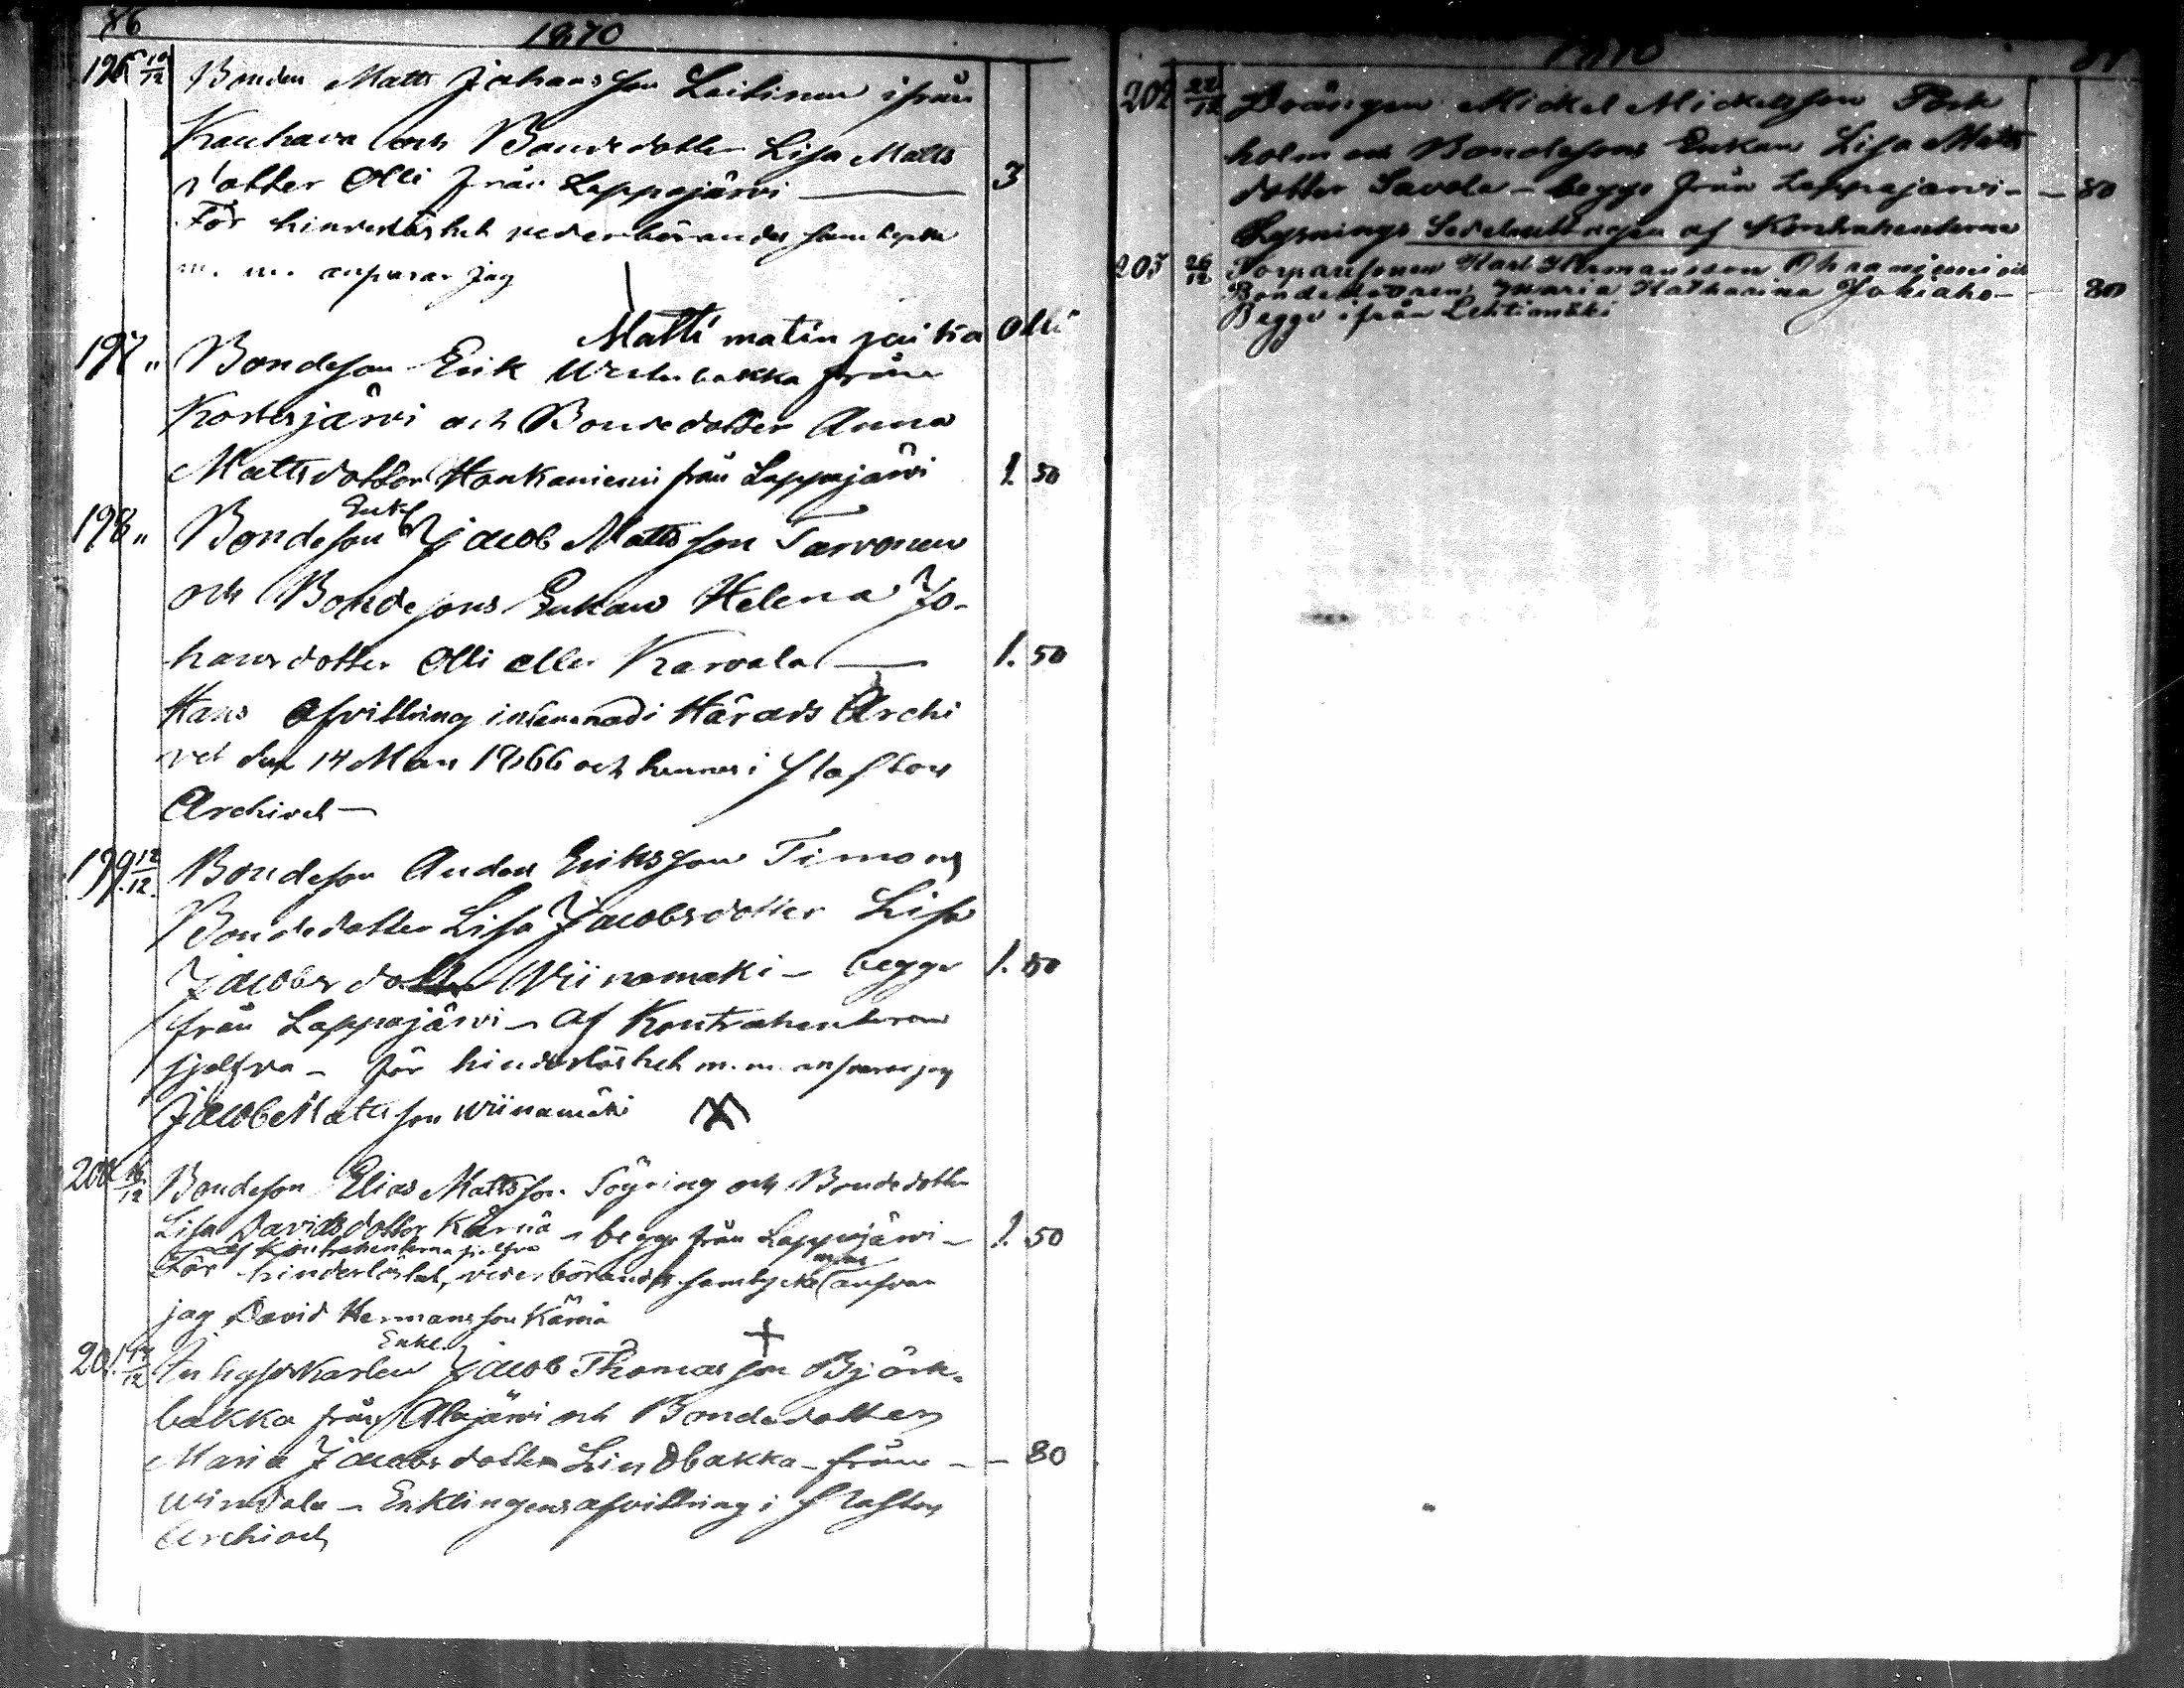 86
1870
196 10/12 Bonden Matts Johansson Laitinen ifrån
Kauhava och Bondedotter Lisa Matts
dotter Olli från Lappajärvi — 3
För hinderlöshet vederbörandes samtycke
m. m. ansvarar jag
Matti matin poika Olli
197 " Bondeson Erik Westerbakka från
Kortesjärvi och Bondedotter Anna
Mattsdotter Honkaniemi från Lappajärvi 1. 50
Enkl
198 " Bondeson Jacob Mattsson Tarvonen
och Bondesons Enkan Helena Jo-
hansdotter Olli eller Karvala — 1. 50
Hans afvittring inlemnad i Härads Archi
vet den 14 Mars 1866 och hennes i Pastors
Archivet —
199 12/12 Bondeson Anders Eriksson Timo och
Bondedotter Lisa Jacobsdotter Lisa
Jacobsdotter Wiinamäki – begge 1. 50
från Lappajärvi – af Kontrahenterne
sjelfva – för hinderlöshet m. m. ansvarar jag
Jacob Mattsson Wiinamäki
200 16/12 Bondeson Elias Mattsson Töyring och Bondedotter
Lisa Davidsdotter Kärnä – begge från Lappajärvi – 1. 50
af Kontrahenterna sjelfva
För hinderlöshet, vederbörandes samtycke ansvar
jag David Hermansson Kärnä
Enkl.
201. 17/12 Inhyseskarlen Jacob Thomasson Björk-
bakka från Alajärvi och Bondedotter
Maria Jacobsdotter Lindbakka – från – – 80
Windala – Enklingens afvittring i Pastors
Archivet
1870
202 22/12 Drängen Mickel Mickelsson Björk
holm och Bondesons Enkan Lisa Matts
dotter Savola – begge från Lappajärvi – – 80
Lysnings Sedel af Kontrahenterne
203 26/12 Torparesonen Karl Hermansson och
Bondedottren Maria Katharina Jokiaho – – 80
Begge ifrån Lehtimäki